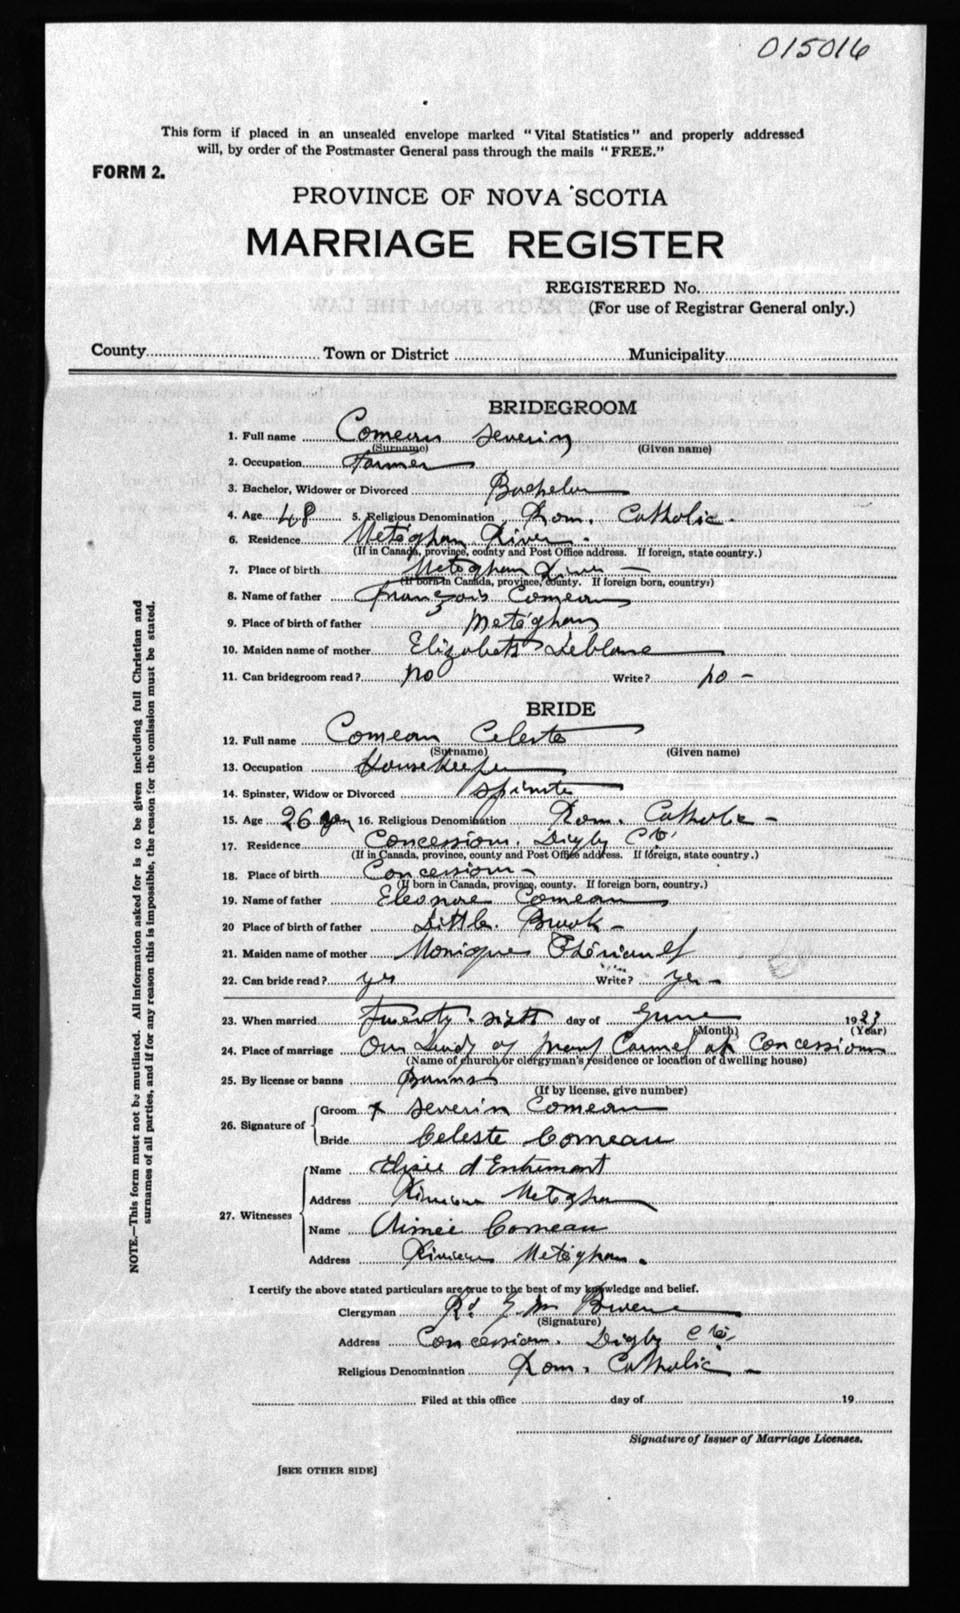 015016
This form if placed in an unsealed envelope marked "Vital Statistics" and properly addressed
will, by order of the Postmaster General pass through the mails "FREE."
FORM 2.
PROVINCE OF NOVA SCOTIA
MARRIAGE REGISTER
REGISTERED No.
(For use of Registrar General only.)
County Town or District Municipality
BRIDEGROOM
1. Full name Comeau Severin
(Surname) (Given name)
2. Occupation Farmer
3. Bachelor, Widower or Divorced Bachelor
4. Age 48 5. Religious Denomination Rom. Catholic.
6. Residence Meteghan River.
(If in Canada, province, county and Post Office address. If foreign, state country.)
7. Place of birth Meteghan River
(If born in Canada, province, county. If foreign born, country.)
8. Name of father François Comeau
9. Place of birth of father Meteghan
10. Maiden name of mother Elizabeth Leblanc
11. Can bridegroom read? no Write? no
BRIDE
12. Full name Comeau Celeste
(Surname) (Given name)
13. Occupation Housekeeper
14. Spinster, Widow or Divorced Spinster
15. Age 26 16. Religious Denomination Rom. Catholic
17. Residence Concession. Digby Cté
(If in Canada, province, county and Post Office address. If foreign, state country.)
18. Place of birth Concession
(If born in Canada, province, county. If foreign born, country.)
19. Name of father Eleonore Comeau
20 Place of birth of father Little Brook
21. Maiden name of mother Monique Thériault
22. Can bride read? yes Write? yes
23. When married Twenty-sixth day of June 1923
(Month) (Year)
24. Place of marriage Our Lady of Mount Carmel at Concession
(Name of church or clergyman's residence or location of dwelling house)
25. By license or banns Banns
(If by license, give number)
26. Signature of Groom x Severin Comeau
Bride Celeste Comeau
27. Witnesses
Name Elisée d'Entremont
Address Meteghan
Name Aimée Comeau
Address Meteghan.
I certify the above stated particulars are true to the best of my knowledge and belief.
Clergyman
(Signature)
Address Concession. Digby Cté
Religious Denomination Rom. Catholic
Filed at this office day of 19
Signature of Issuer of Marriage Licenses.
[SEE OTHER SIDE]
NOTE.—This form must not be mutilated. All information asked for is to be given including full Christian and
surnames of all parties, and if for any reason this is impossible, the reason for the omission must be stated.